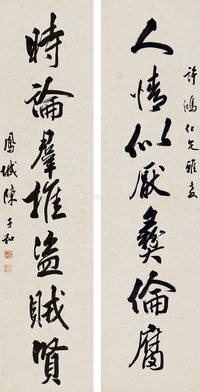 許鴻仁兄雅教
人情似厭彝倫腐
時論羣推盜賊賢
鳳城陳子和